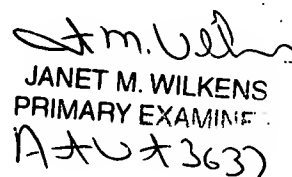 JANET M. WILKENS
PRIMARY EXAMINE
A*U*3637